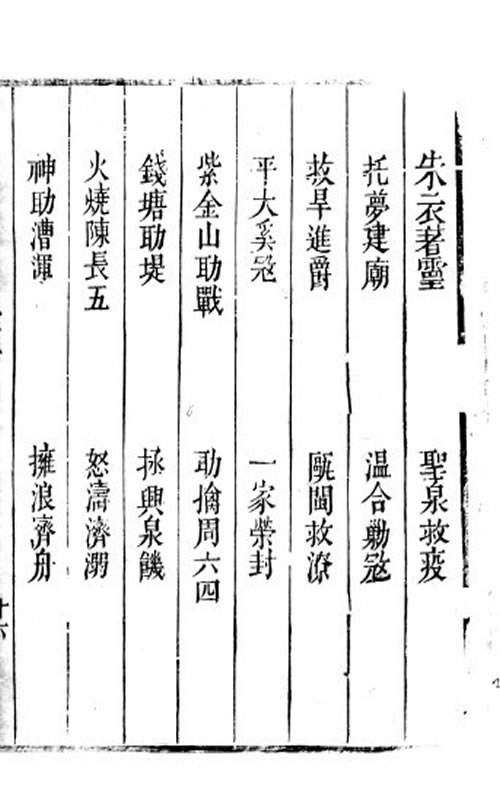 朱衣著靈　聖泉救疫
托夢建廟　温合勦寇
救旱進爵　甌閩救潦
平大奚寇　一家榮封
紫金山助戰　助擒周六四
錢塘助堤　拯興泉饑
火燒陳長五　怒濤濟溺
神助漕渾　擁浪濟舟
十六